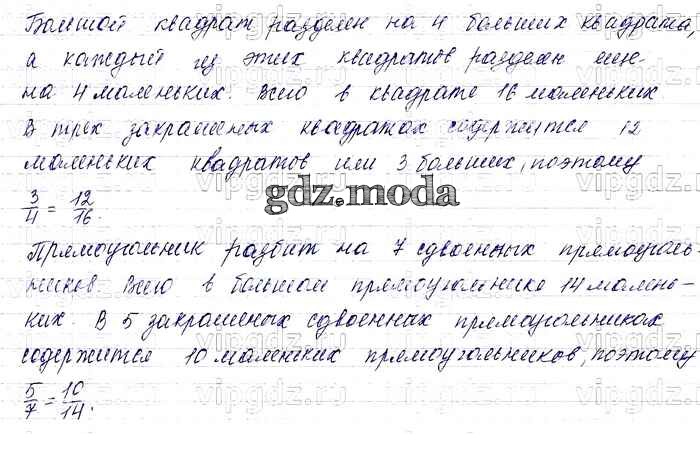 Большой квадрат разделен на 4 больших квадрата,
а каждый из этих квадратов разделен еще
на 4 маленьких. Всего в квадрате 16 маленьких
В трех закрашеных квадратах содержится 12
маленьких квадратов или 3 больших, поэтому
gdz.moda
3/4 = 12/16.
Прямоугольник разбит на 7 сдвоенных прямоуголь-
ников. Всего в большом прямоугольнике 14 малень-
ких. В 5 закрашеных сдвоенных прямоугольниках
содержится 10 маленьких прямоугольников, поэтому
5/7 = 10/14.